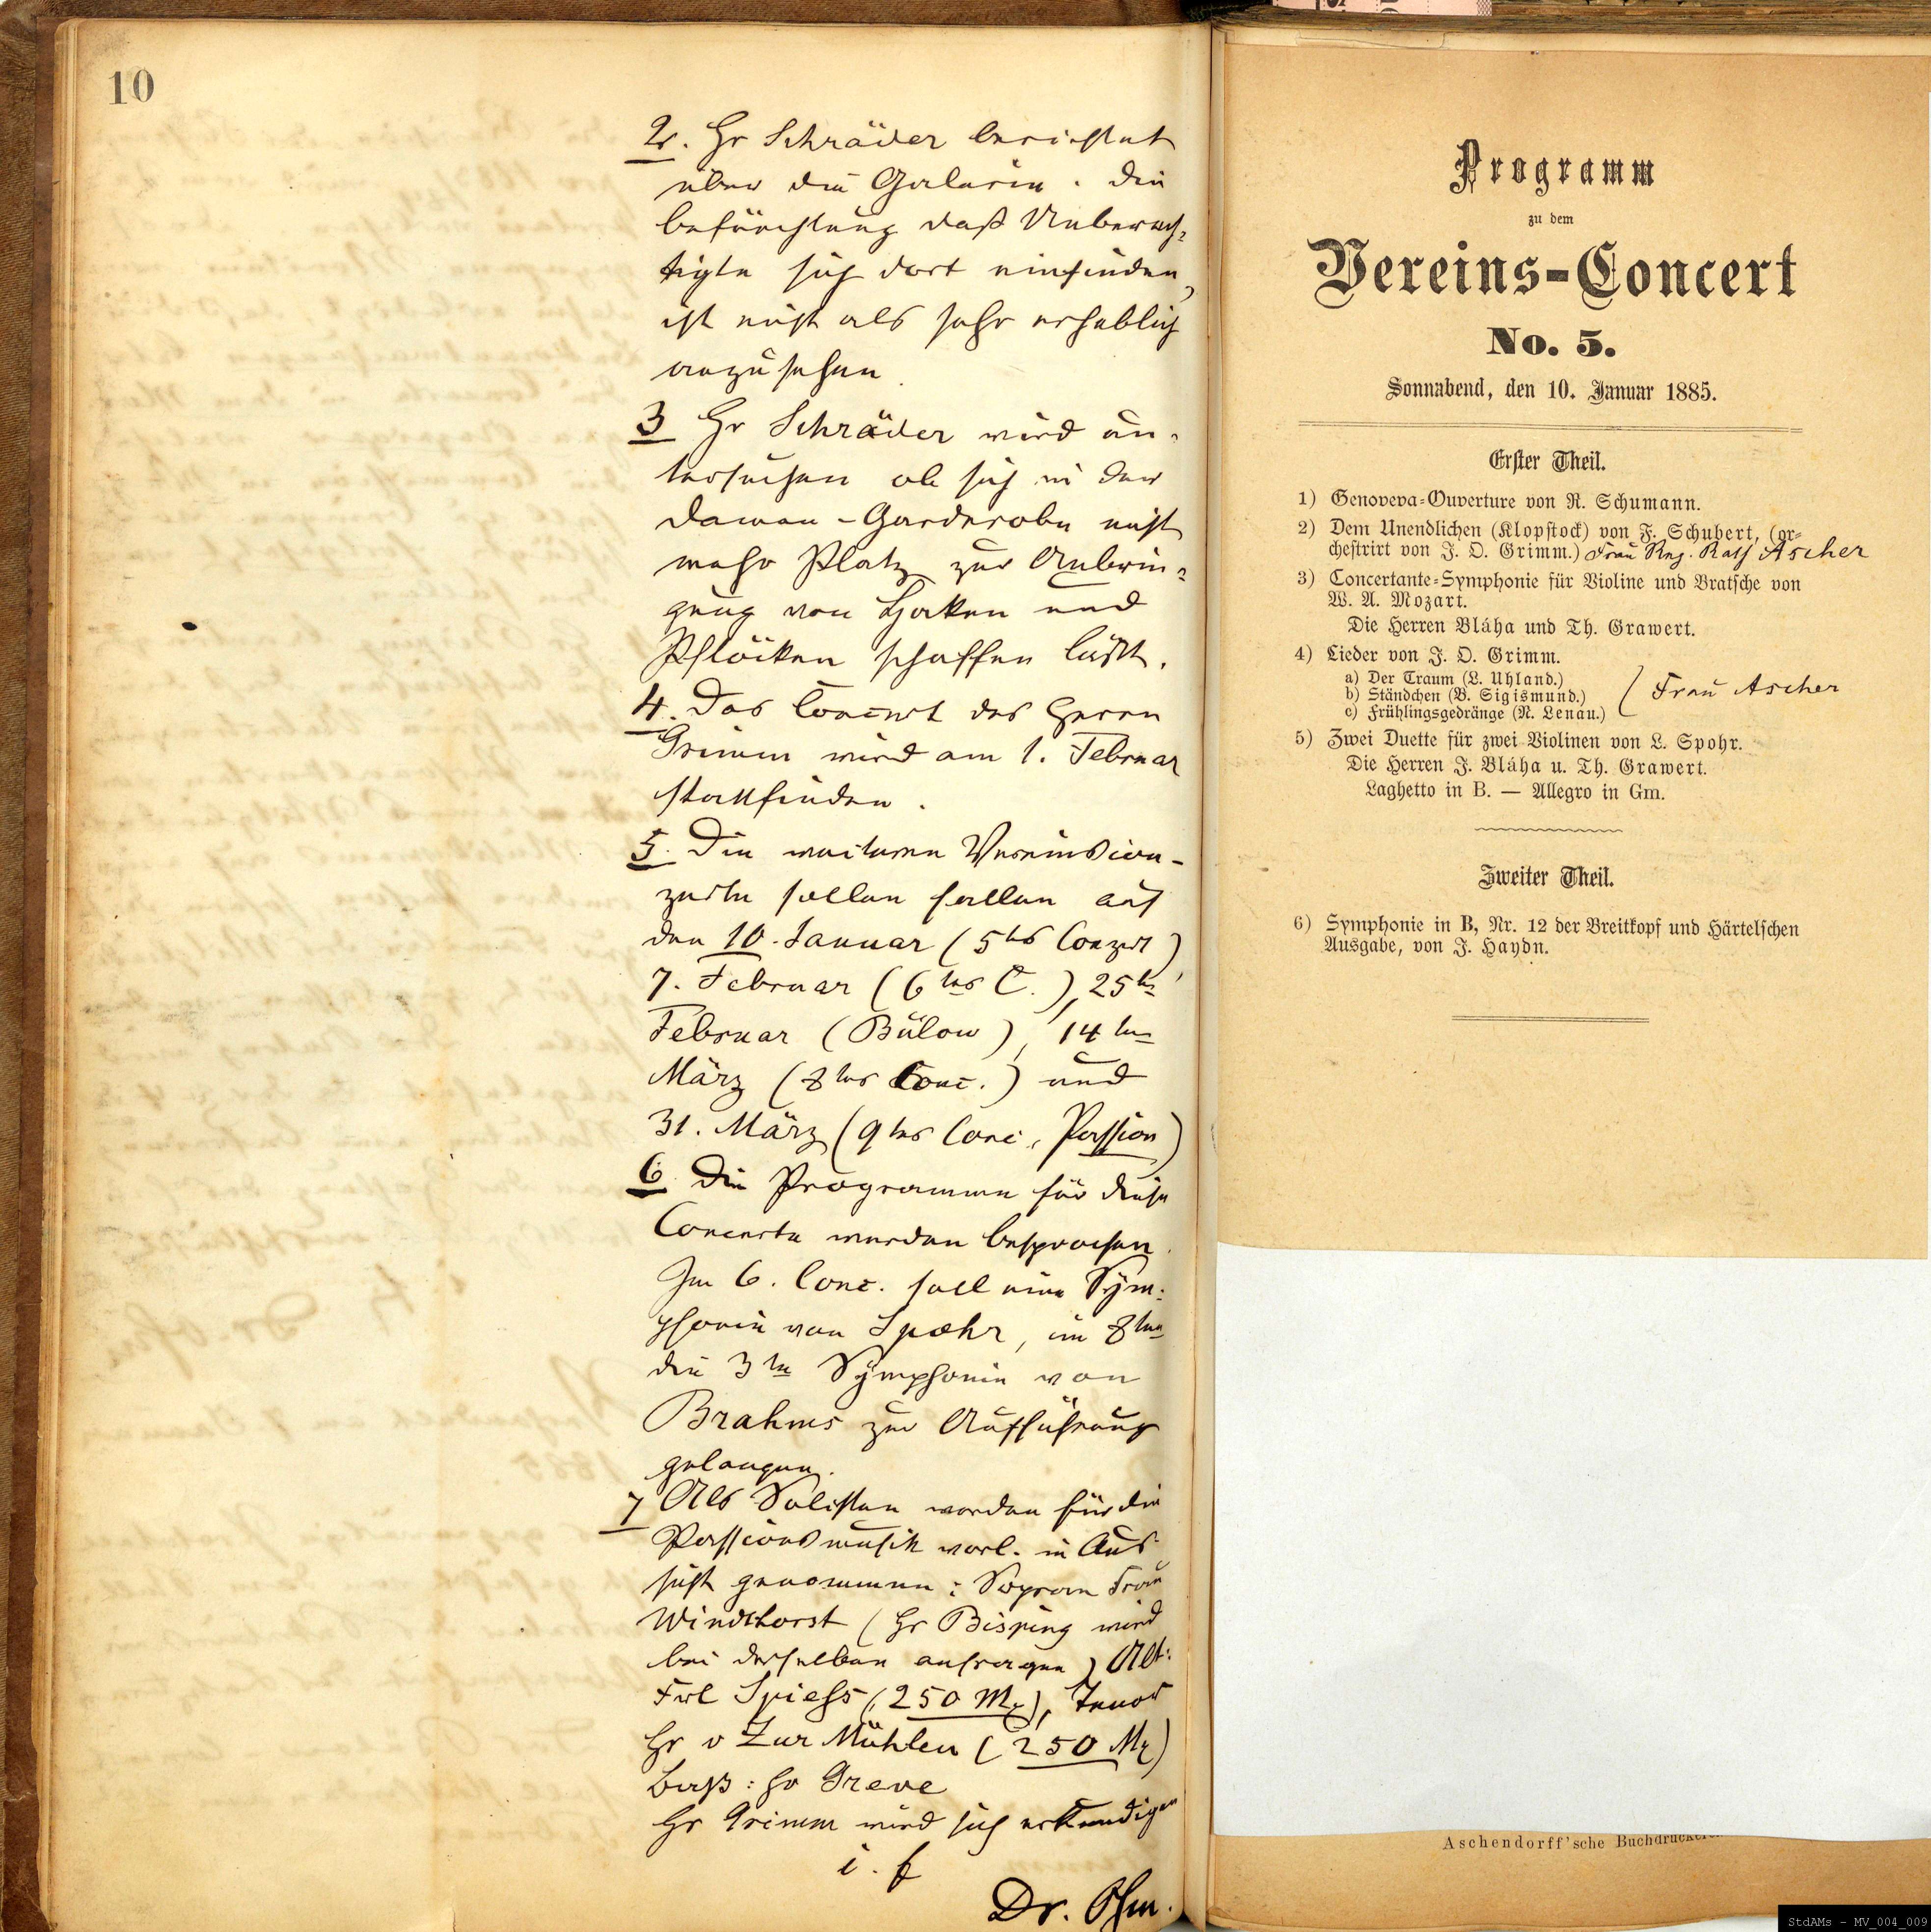 10
2. Hr Schräder berichtet
über die Galerie. Die
Befürchtung daß Unberech-
tigte sich dort einfinden,
ist nicht als sehr erheblich
anzusehen.
3 Hr Schräder wird un-
tersuchen ob sich in der
Damen-Garderobe nicht
mehr Platz zur Anbrin-
gung von Haken und
Pflöcken schaffen läßt.
4. Das Concert des Herrn
Grimm wird am 1. Februar
stattfinden.
5. Die weiteren Vereinscon-
zerte sollen fallen auf
den 10. Januar (5tes Conzert)
7. Februar (6tes C.), 25te
Februar (Bülow), 14ten
März (8tes Conc.) und
31. März (9tes Conc. Passion)
6. Die Programme für diese
Concerte werden besprochen.
Im 6. Conc. soll eine Sym-
phonie von Spohr, im 8ten
die 3te Symphonie von
Brahms zur Aufführung
gelangen.
7 Als Solisten werden für die
Passionsmusik vorl. in Aus
sicht genommen: Sopran Frau
Windthorst (Hr Bisping wird
bei derselben anfragen) Alt:
Frl Spiess (250 Mk), Tenor
Hr v Zur Mühlen (250 Mk)
Baß: Hr Greve
Hr Grimm wird sich erkundigen
i. f
Dr. Ohm.
Programm
zu dem
Vereins-Concert
No. 5.
Sonnabend, den 10. Januar 1885.
Erster Theil.
1) Genoveva-Ouverture von R. Schumann.
2) Dem Unendlichen (Klopstock) von F. Schubert, (or-
chestrirt von J. O. Grimm.) Frau Reg. Rath Ascher
3) Concertante-Symphonie für Violine und Bratsche von
W. A. Mozart.
Die Herren Bláha und Th. Grawert.
4) Lieder von J. O. Grimm.
a) Der Traum (L. Uhland.)
b) Ständchen (B. Sigismund.) ( Frau Ascher
c) Frühlingsgedränge (N. Lenau.)
5) Zwei Duette für zwei Violinen von L. Spohr.
Die Herren J. Bláha u. Th. Grawert.
Laghetto in B. — Allegro in Gm.
Zweiter Theil.
6) Symphonie in B, Nr. 12 der Breitkopf und Härtelschen
Ausgabe, von J. Haydn.
Aschendorff'sche Buchdruckerei
StdAMs - MV_004_009